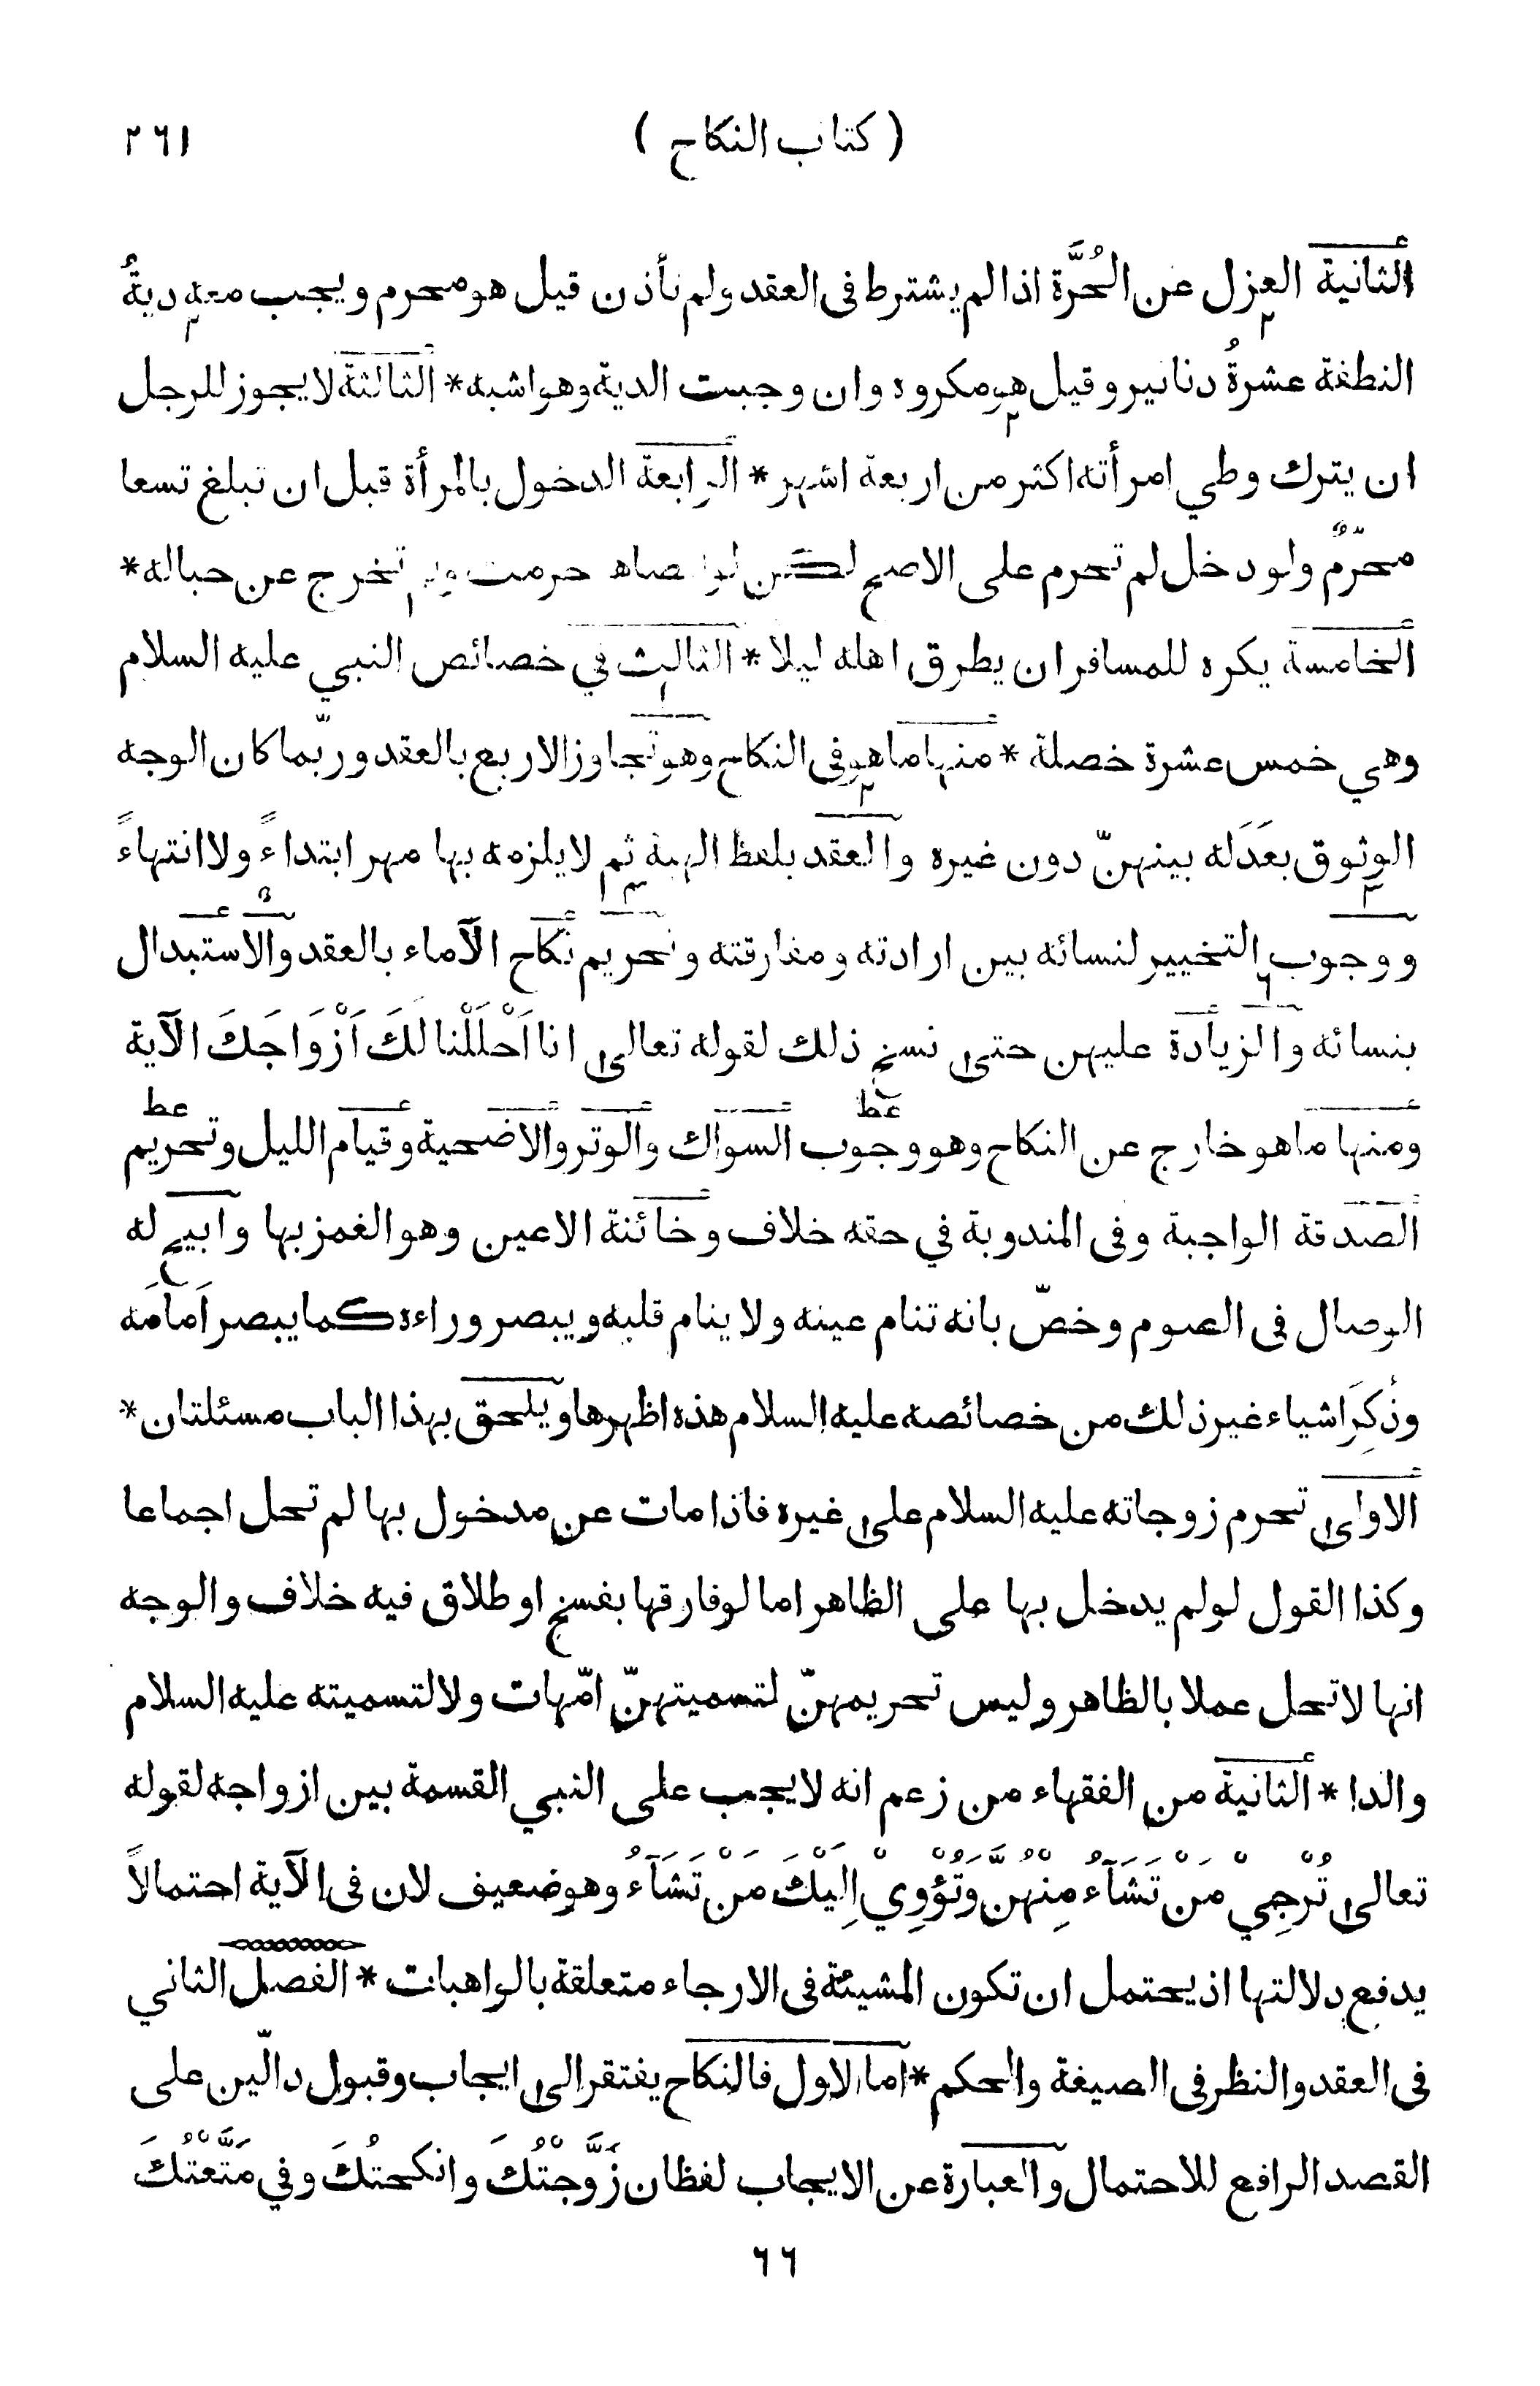 ( كتاب النكاح ) ٢٦١
الثانية العزل عن الحُرَّة اذا لم يشترط فى العقد ولم تأذن قيل هو محرم ويجب معه ديةُ
النطفة عشرةُ دنانير وقيل هو مكروه وان وجبت الدية وهو اشبه * الثالثة لا يجوز للرجل
ان يترك وطي امرأته اكثر من اربعة اشهر * الرابعة الدخول بالمرأة قبل ان تبلغ تسعا
محرّمٌ ولو دخل لم تحرم على الاصح لكن لو حرمت ولم تخرج عن حباله *
الخامسة يكره للمسافر ان يطرق اهله ليلا * الثالث في خصائص النبي عليه السلام
وهي خمس عشرة خصلة * منها ما هو فى النكاح وهو تجاوز الاربع بالعقد وربّما كان الوجه
الوثوق بعَدَله بينهنّ دون غيره والعقد بلفظ الهبة ثم لا يلزمه بها مهر ابتداءً ولا انتهاءً
ووجوب التخيير لنسائه بين ارادته ومفارقته وتحريم نكاح الآماء بالعقد والاستبدال
بنسائه والزيادة عليهن حتى نسخ ذلك لقوله تعالى انا اَحْلَلْنا لكَ اَزْوَاجَكَ الآية
ومنها ما هو خارج عن النكاح وهو وجوب السواك والوتر والاضحية وقيام الليل وتحريم
الصدقة الواجبة وفى المندوبة في حقه خلاف وخائنة الاعين وهو الغمز بها وابيح له
الوصال فى الصوم وخصّ بانه تنام عينه ولا ينام قلبه ويبصر وراءه كما يبصر اَمامَه
وذُكِرَ اشياء غير ذلك من خصائصه عليه السلام هذه اظهرها ويلحق بهذا الباب مسئلتان *
الاولى تحرم زوجاته عليه السلام على غيره فاذا مات عن مدخول بها لم تحل اجماعا
وكذا القول لو لم يدخل بها على الظاهر اما لو فارقها بفسخ او طلاق فيه خلاف والوجه
انها لا تحل عملا بالظاهر وليس تحريمهنّ لتسميتهنّ امّهات ولا لتسميته عليه السلام
والدا * الثانية من الفقهاء من زعم انه لا يجب على النبي القسمة بين ازواجه لقوله
تعالى تُرْجِيْ مَنْ تَشَآءُ مِنْهُنَّ وَتُؤْوِيْ اِلَيْكَ مَنْ تَشَآءُ وهو ضعيف لان فى الآية احتمالاً
يدفع دلالتها اذ يحتمل ان تكون المشيئة فى الارجاء متعلقة بالواهبات * الفصل الثاني
فى العقد والنظر فى الصيغة والحكم * اما الاول فالنكاح يفتقر الى ايجاب وقبول دالّين على
القصد الرافع للاحتمال والعبارة عن الايجاب لفظان زَوَّجْتُكَ وانكحتُكَ وفي مَتَّعْتُكَ
٦٦